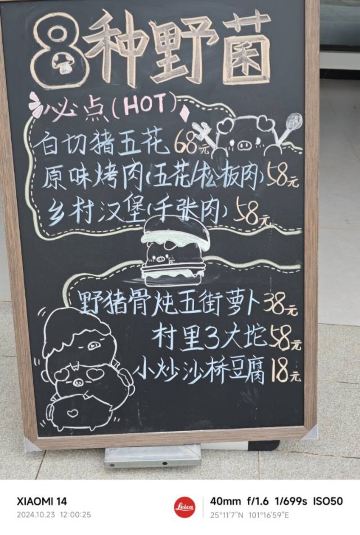 8种野菌
必点(HOT)
白切猪五花 68元
原味烤肉(五花/松板肉)58元
乡村汉堡(千张肉) 58元
野猪骨炖五街萝卜38元
村里3大坨58元
小炒沙桥豆腐18元
XIAOMI 14
2024.10.23 12:00:25
Leica
40mm f/1.6 1/699s ISO50
25°11'7"N 101°16'59"E